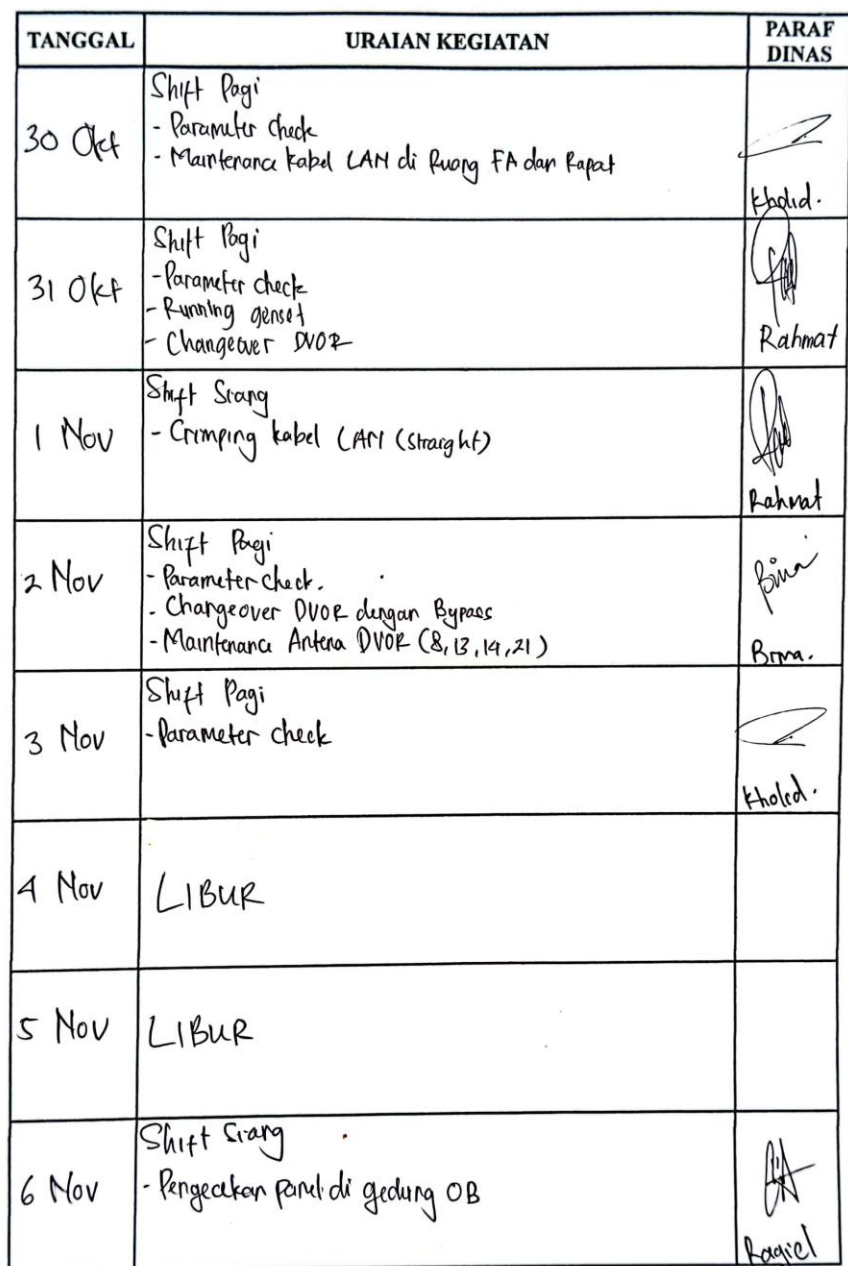 TANGGAL
URAIAN KEGIATAN
PARAF DINAS
30 Okt
Shift Pagi
- Parameter check
- Maintenance kabel LAN di Ruang FA dan Rapat
Kholid.
31 Okt
Shift Pagi
- Parameter check
- Running genset
- Changeover DVOR
Rahmat
1 Nov
Shift Siang
- Crimping kabel LAN (straight)
Rahmat
2 Nov
Shift Pagi
- Parameter check.
- Changeover DVOR dengan Bypass
- Maintenance Antena DVOR (8, 13, 14, 21)
Bima
Bima.
3 Nov
Shift Pagi
- Parameter check
Kholid.
4 Nov
LIBUR
5 Nov
LIBUR
6 Nov
Shift Siang
- Pengecekan panel di gedung OB
Ragiel